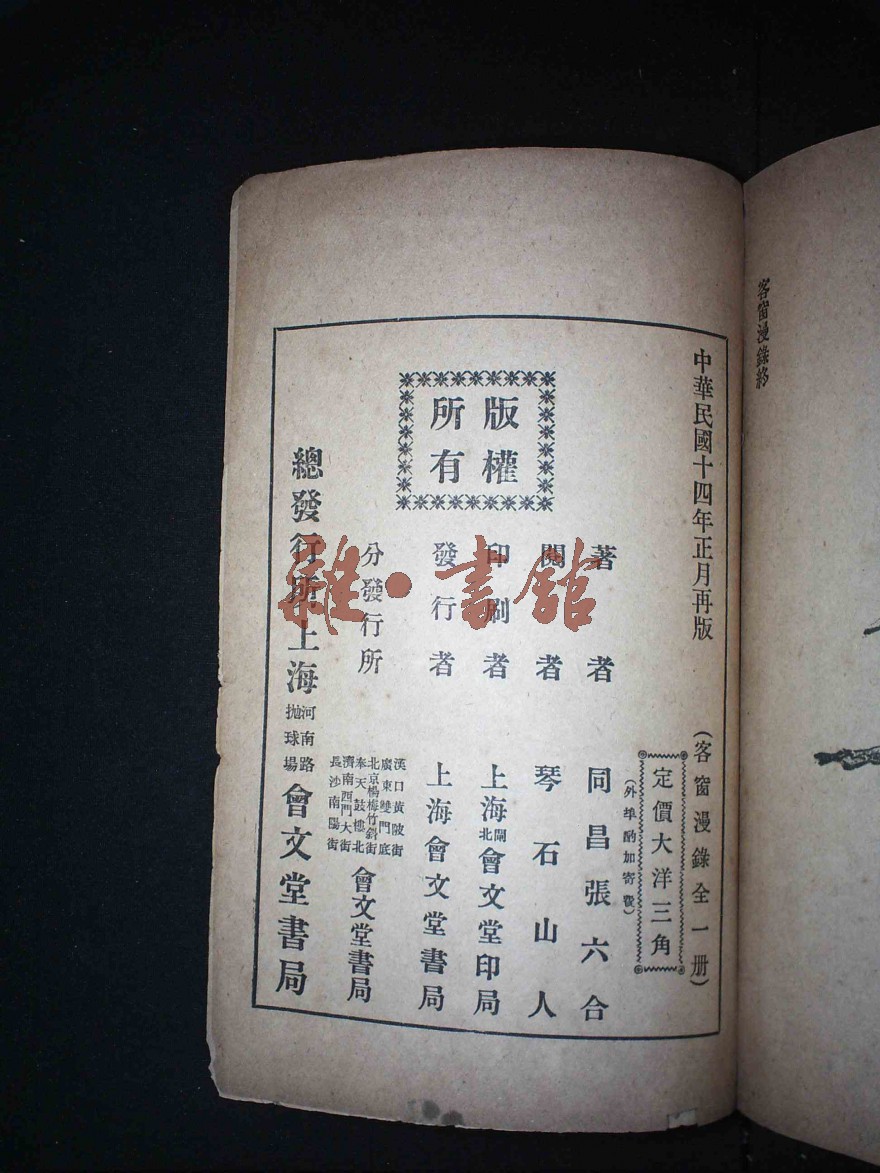 客窗漫錄終
中華民國十四年正月再版
(客窗漫錄全一册)
定價大洋三角
(外埠酌加寄費)
著者 同昌張六合
閱者 琴石山人
印刷者 上海閘北會文堂印局
發行者 上海會文堂書局
版權
所有
分發行所
漢口黃陂街
廣東雙門底
北京楊梅竹斜街
奉天鼓樓北
濟南西門大街
長沙南陽街
會文堂書局
總發行所上海河南路拋球場會文堂書局
雜·書館